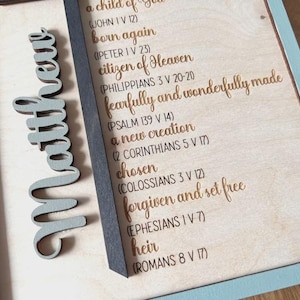 Matthew
a child of God
(JOHN 1 V 12)
born again
(PETER 1 V 23)
citizen of Heaven
(PHILIPPIANS 3 V 20-21)
fearfully and wonderfully made
(PSALM 139 V 14)
a new creation
(2 CORINTHIANS 5 V 17)
chosen
(COLOSSIANS 3 V 12)
forgiven and set free
(EPHESIANS 1 V 7)
heir
(ROMANS 8 V 17)